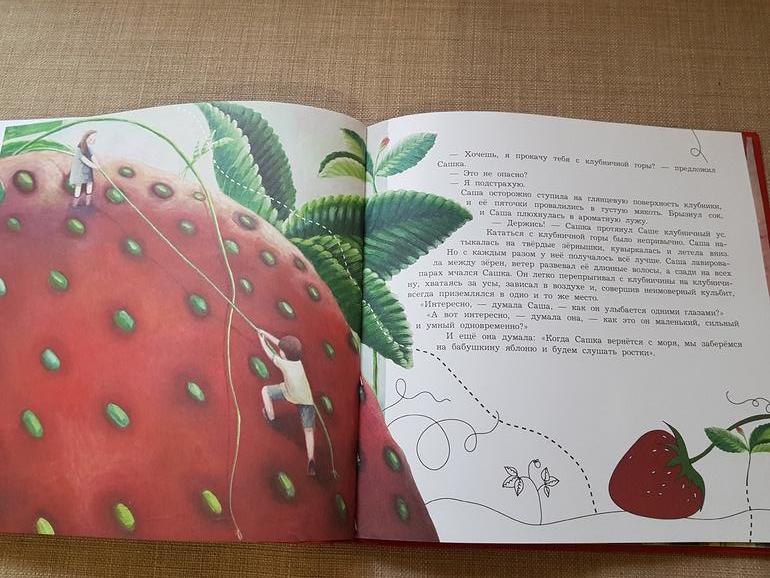 — Хочешь, я прокачу тебя с клубничной горы? — предложил
Сашка.
— Это не опасно?
— Я подстрахую.
Саша осторожно ступила на глянцевую поверхность клубники,
и её пяточки провалились в густую мякоть. Брызнул сок,
и Саша плюхнулась в ароматную лужу.
— Держись! — Сашка протянул Саше клубничный ус.
Кататься с клубничной горы было непривычно. Саша на-
тыкалась на твёрдые зёрнышки, кувыркалась и летела вниз.
Но с каждым разом у неё получалось всё лучше. Саша лавирова-
ла между зёрен, ветер развевал её длинные волосы, а сзади на всех
парах мчался Сашка. Он легко перепрыгивал с клубничины на клубничи-
ну, хватаясь за усы, зависал в воздухе и, совершив неимоверный кульбит,
всегда приземлялся в одно и то же место.
«Интересно, — думала Саша, — как он улыбается одними глазами?»
«А вот интересно, — думала она, — как это он маленький, сильный
и умный одновременно?»
И ещё она думала: «Когда Сашка вернётся с моря, мы заберёмся
на бабушкину яблоню и будем слушать ростки».